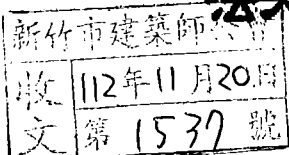 新竹市建築師公會
收文
112年11月20日
第1537號